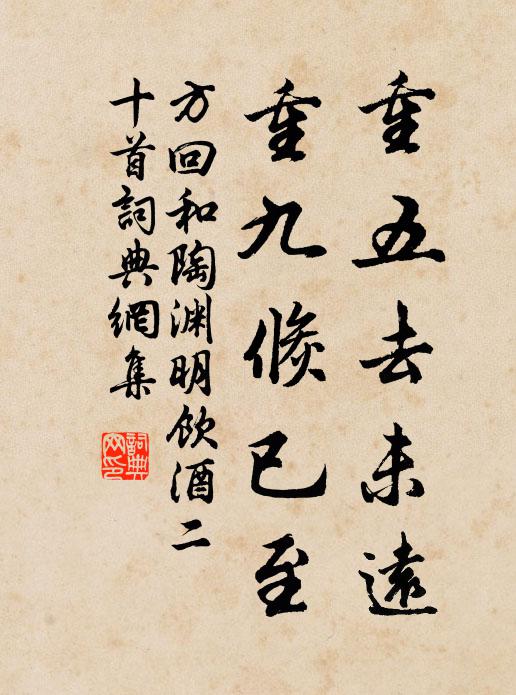 重五去未遠
重九倐已至
方回和陶渊明飲酒二
十首詞典網集
詞典
网印